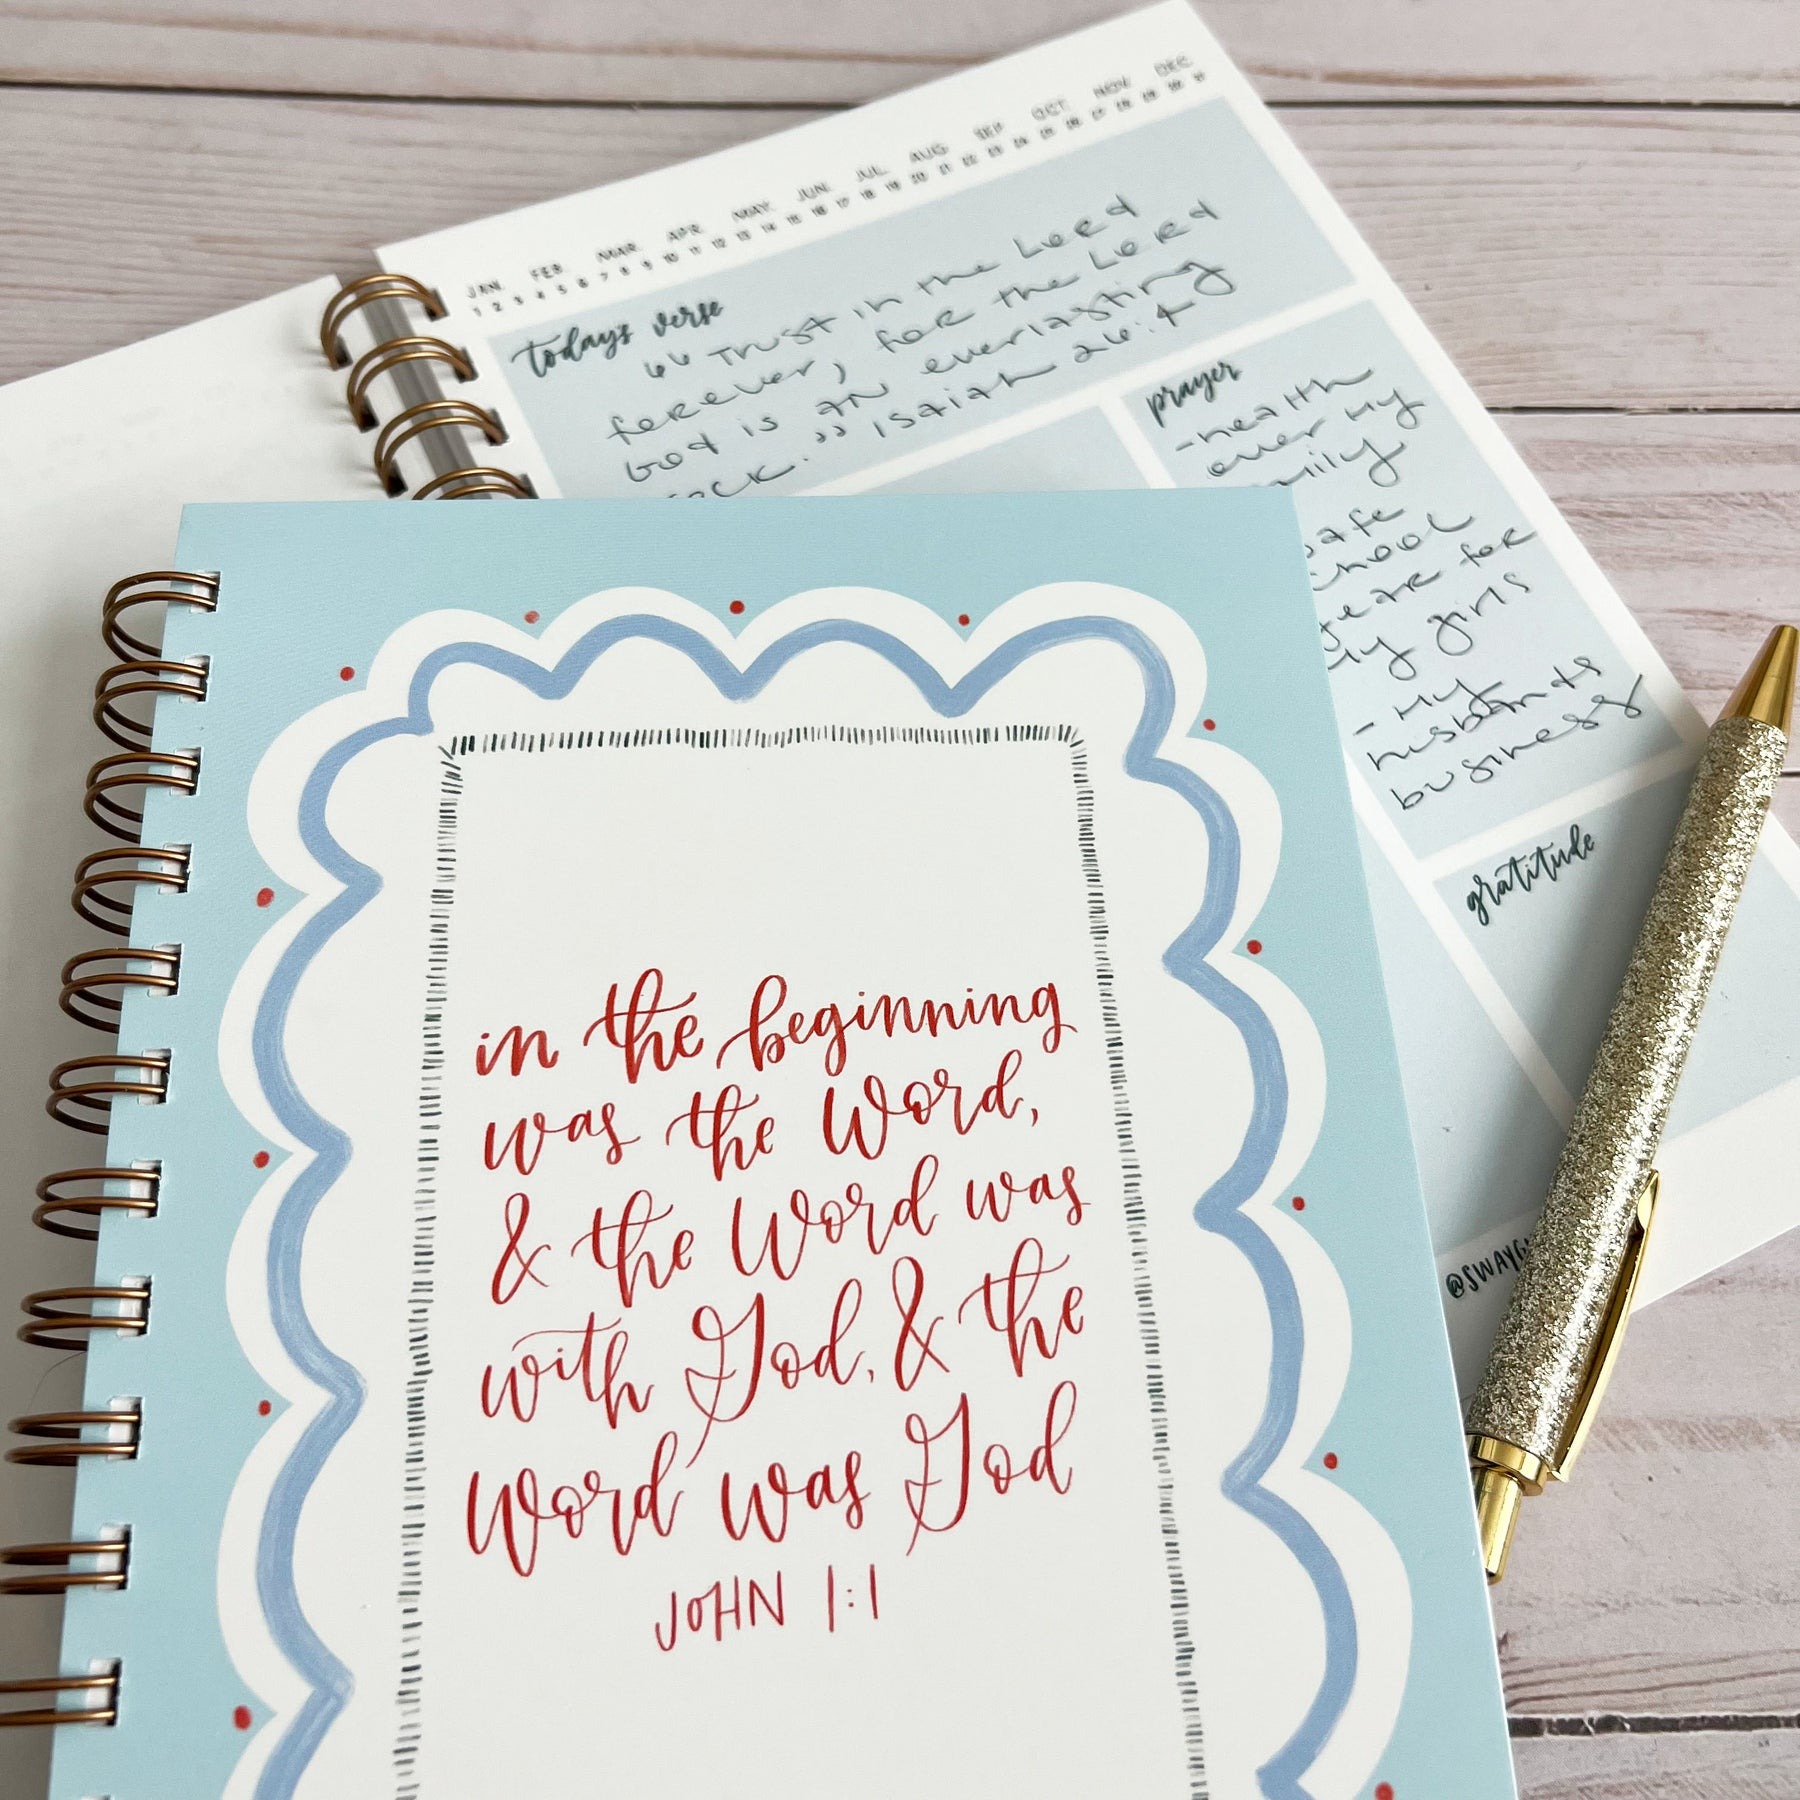 JAN. FEB. MAR. APR. MAY. JUN. JUL. AUG. SEP. OCT. NOV. DEC.
1 2 3 4 5 6 7 8 9 10 11 12 13 14 15 16 17 18 19 20 21 22 23 24 25 26 27 28 29 30 31
today's verse
"Trust in the Lord
forever, for the Lord
God is an everlasting
rock." Isaiah 26:4
prayer
-health
over my
family
safe
school
year for
my girls
- My
husbands
business
gratitude
in the beginning
was the Word,
& the Word was
with God, & the
Word was God
JOHN 1:1